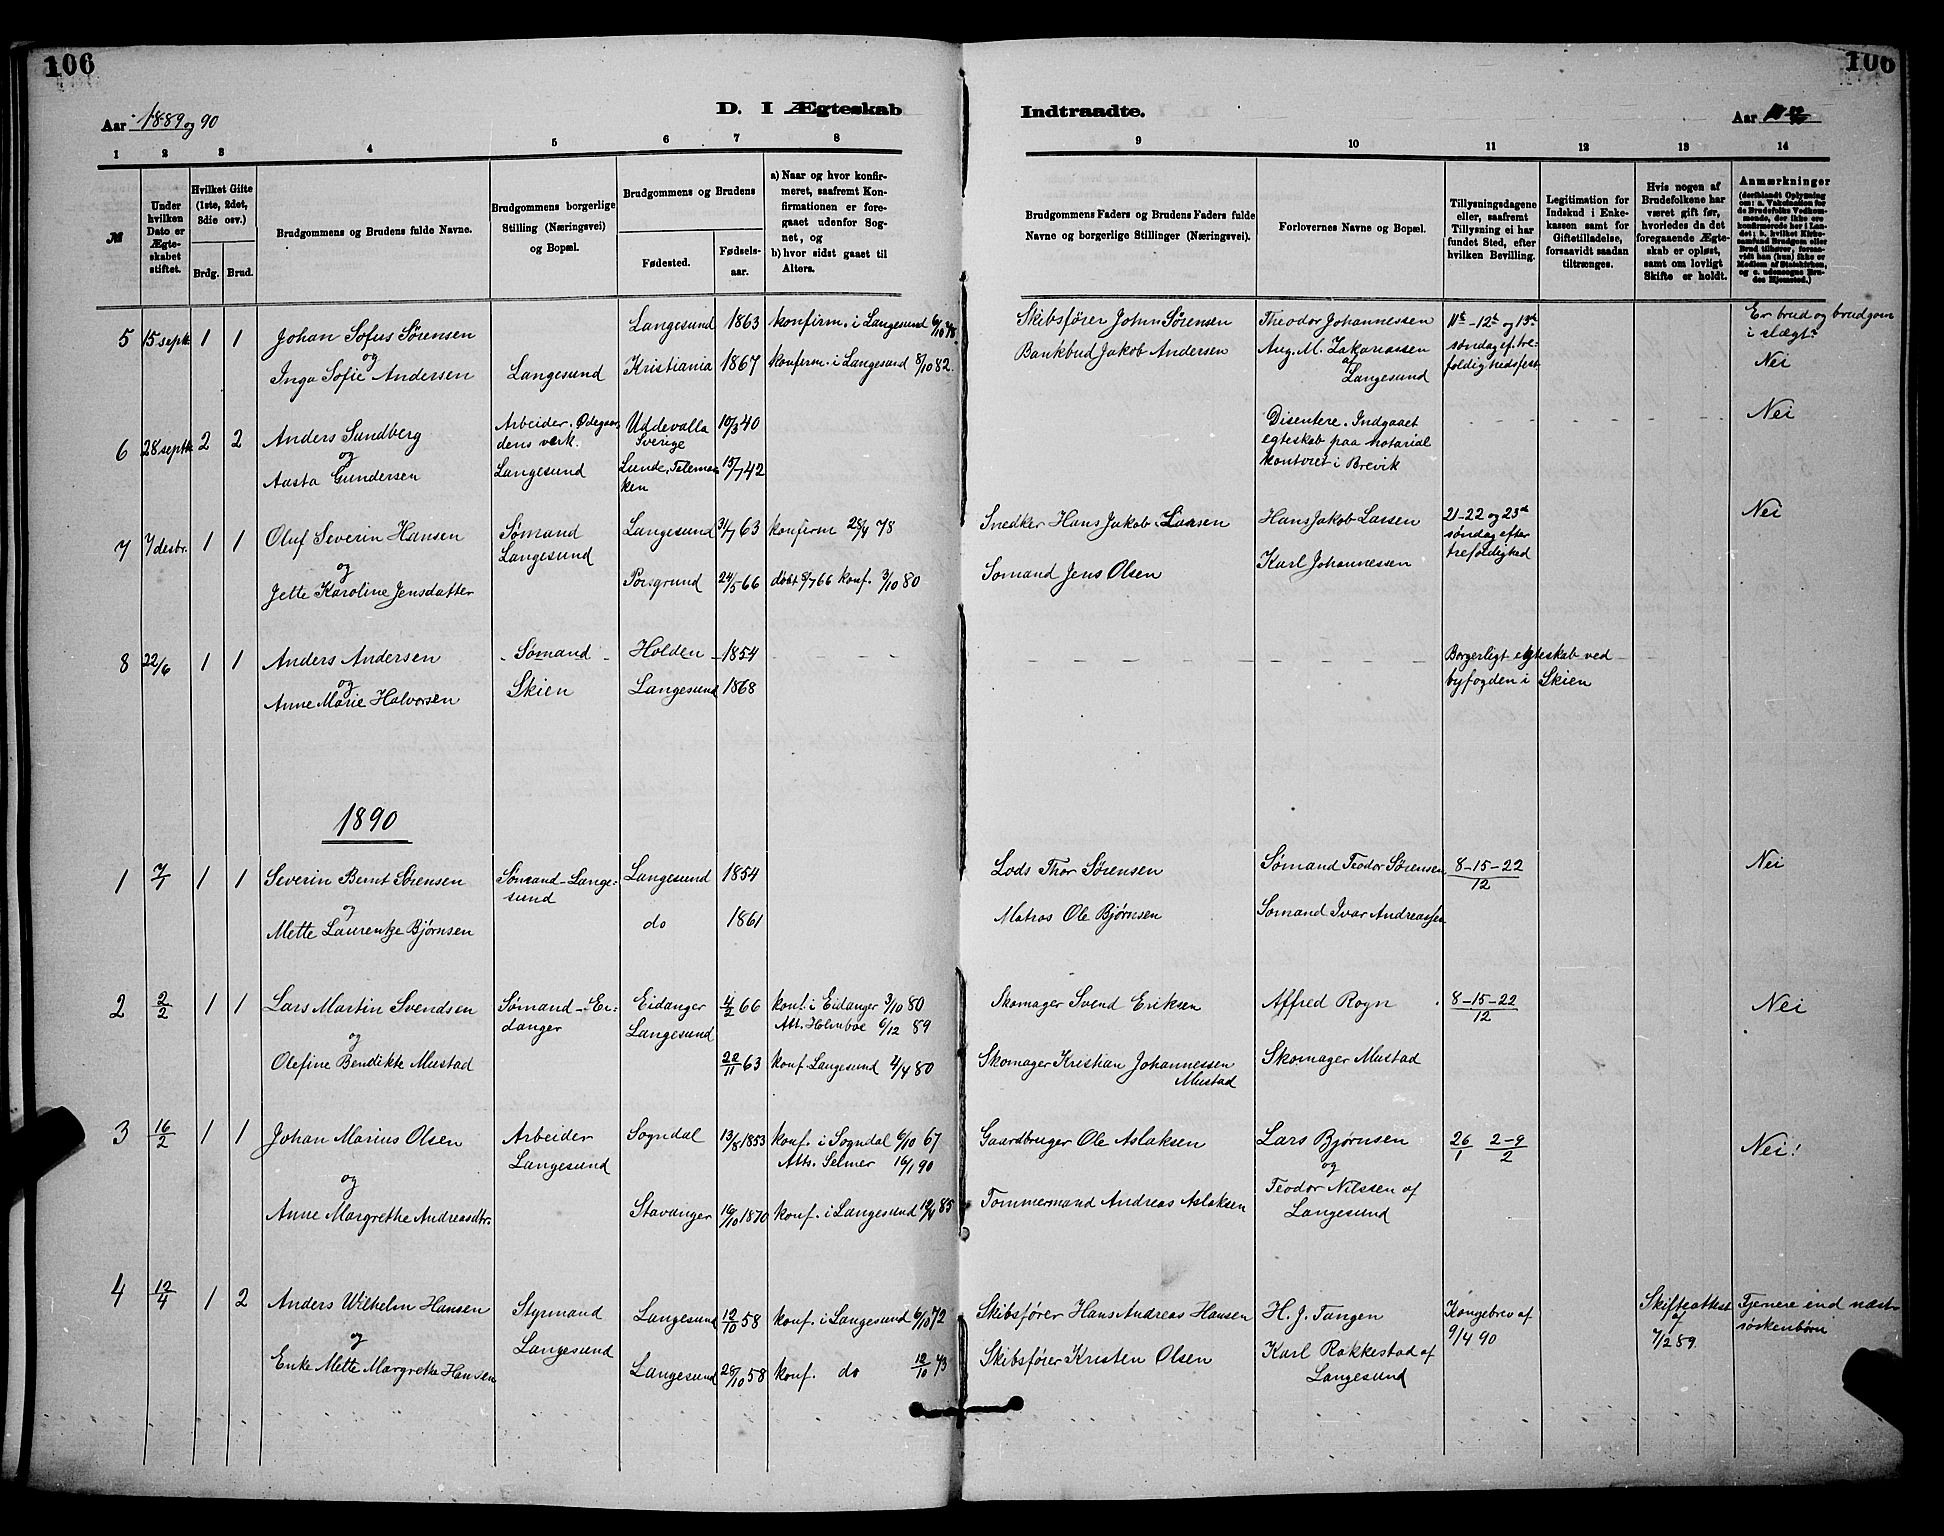 106
106
Aar 1889 og 90
D. I Ægteskab
Indtraadte.
Aar
1 2 3 4 5 6 7 8
9 10 11 12 13 14
№
Under hvilken Dato er Ægteskabet stiftet.
Hvilket Gifte (1ste, 2det, 3die osv.)
Brdg. Brud.
Brudgommens og Brudens fulde Navne.
Brudgommens borgerlige Stilling (Næringsvei) og Bopæl.
Brudgommens og Brudens
Fødested. Fødselsaar.
a) Naar og hvor konfirmeret, saafremt Konfirmationen er foregaaet udenfor Sognet, og
b) hvor sidst gaaet til Alters.
Brudgommens Faders og Brudens Faders fulde Navne og borgerlige Stillinger (Næringsvei).
Forlovernes Navne og Bopæl.
Tillysningsdagene eller, saafremt Tillysning ei har fundet Sted, efter hvilken Bevilling.
Legitimation for Indskud i Enkekassen samt for Giftetilladelse, forsaavidt saadan tiltrænges.
Hvis nogen af Brudefolkene har været gift før, hvorledes da det foregaaende Ægteskab er opløst, samt om lovligt Skifte er holdt.
Anmærkninger
5 15 septb 1 1 Johan Sofus Sørensen Langesund 1863 konfirm. i Langesund 6/10 78. Skibsfører John Sørensen Theodor Johannessen 11te-12te og 13de Er brud og brudgom
og i slægt?
Inga Sofie Andersen Langesund Kristiania 1867 konfirm. i Langesund 8/10 82. Bankbud Jakob Andersen Aug. M. Zakariassen søndag ef. trefoldighedsfest Nei
af Langesund
6 28 septb 2 2 Anders Sundberg Arbeider. Ødegaardens verk. Uddevalla Sverige 10/3 40 Disentere. Indgaaet Nei
og egteskab paa notarial
Aasta Gundersen Langesund Lunde, Telemarken 15/7 42 kontoret i Brevik
7 7 desbr. 1 1 Oluf Severin Hansen Sømand Langesund 31/7 63 konfirm 28/4 78 Snedker Hans Jakob Larsen Hans Jakob Larsen 21-22 og 23de Nei
og Langesund søndag efter trefoldighed
Jette Karoline Jensdatter Porsgrund 24/5-66 døbt 8/7 66 konf. 3/10 80 Sømand Jens Olsen Karl Johannessen
8 22/6 1 1 Anders Andersen Sømand Holden 1854 Borgerligt egteskab ved
og Skien Langesund 1868 byfogden i Skien
Anne Marie Halvorsen
1890
1 7/1 1 1 Severin Bernt Sørensen Sømand-Langesund Langesund 1854 Lods Thor Sørensen Sømand Teodor Sørensen 8-15-22/12 Nei
og
Mette Laurentze Bjørnsen do 1861 Matros Ole Bjørnsen Sømand Ivar Andreassen
2 2/2 1 1 Lars Martin Svendsen Sømand-Eidanger Eidanger 4/2 66 konf. i Eidanger 3/10 80 Skomager Svend Eriksen Alfred Rogn 8-15-22/12 Nei
og Langesund Att. Holmboe 6/12 89
Olefine Bendikte Mustad 22/11 63 konf. Langesund 4/4 80 Skomager Kristian Johannessen Mustad Skomager Mustad
3 16/2 1 1 Johan Marius Olsen Arbeider Sogndal 13/8 1853 konf. i Sogndal 6/10 67 Gaardbruger Ole Aslaksen Lars Bjørnsen 26/1 2-9/2 Nei!
og Langesund Atts. Selmer 16/1 90 og
Anne Margrethe Andreasdtr. Stavanger 16/10 1870 konf. i Langesund 12/4 85 Tømmermand Andreas Aslaksen Teodor Nilssen af Langesund
4 12/4 1 2 Anders Wilhelm Hansen Styrmand Langesund 12/10 58 konf. i Langesund 6/10 72 Skibsfører Hans Andreas Hansen H. J. Tangen Kongebrev af 9/4 90 Skifteattest af 7/2 89. Fjernere end næstsøskenbørn
og Langesund
Enke Mette Margrethe Hansen Langesund 28/10 58 konf. do 12/10 73 Skibsfører Kristen Olsen Karl Rakkestad af Langesund